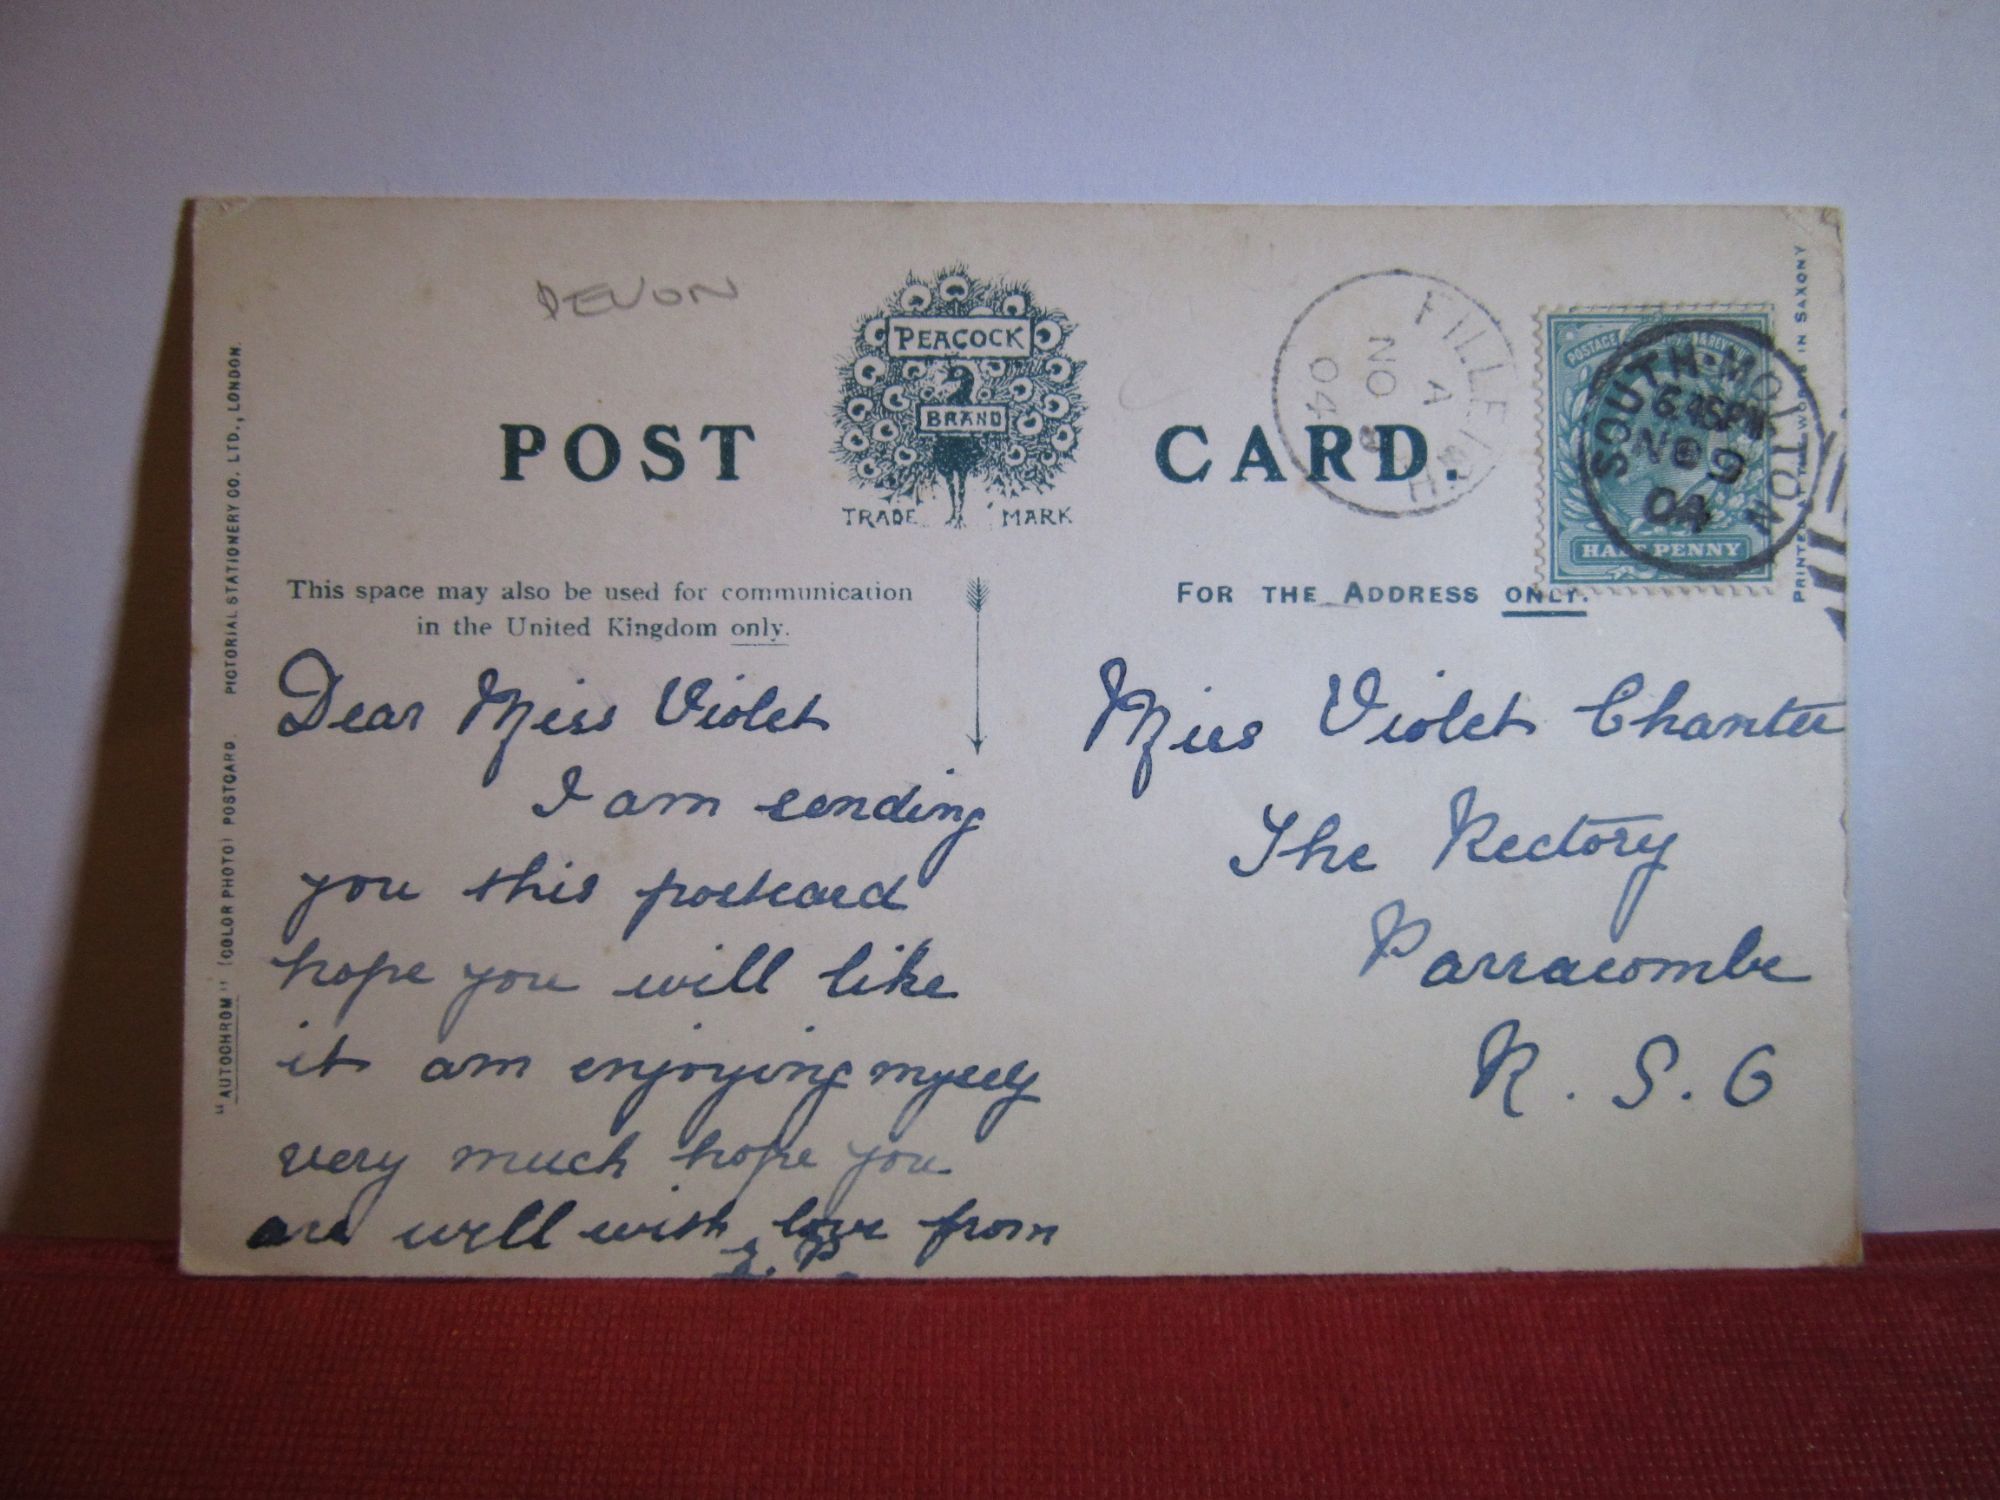 DEVON
PEACOCK
BRAND
TRADE MARK
POST CARD.
FILLEIGH
A
NO 9
04
POSTAGE & REVENUE
HALF PENNY
SOUTH-MOLTON
6.45PM
NO 9
04
PRINTED AT THE WORKS IN SAXONY
"AUTOCHROM" (COLOR PHOTO) POSTCARD. PICTORIAL STATIONERY CO. LTD., LONDON.
This space may also be used for communication
in the United Kingdom only.
FOR THE ADDRESS ONLY.
Dear Miss Violet
I am sending
you this postcard
hope you will like
it am enjoying myself
very much hope you
are well with love from
Miss Violet Chanter
The Rectory
Parracombe
R. S. O